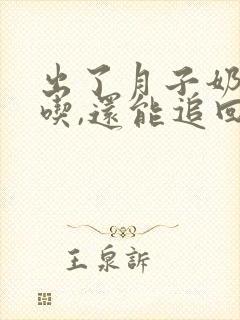 出了月子奶
喫,還能追回
王泉訴